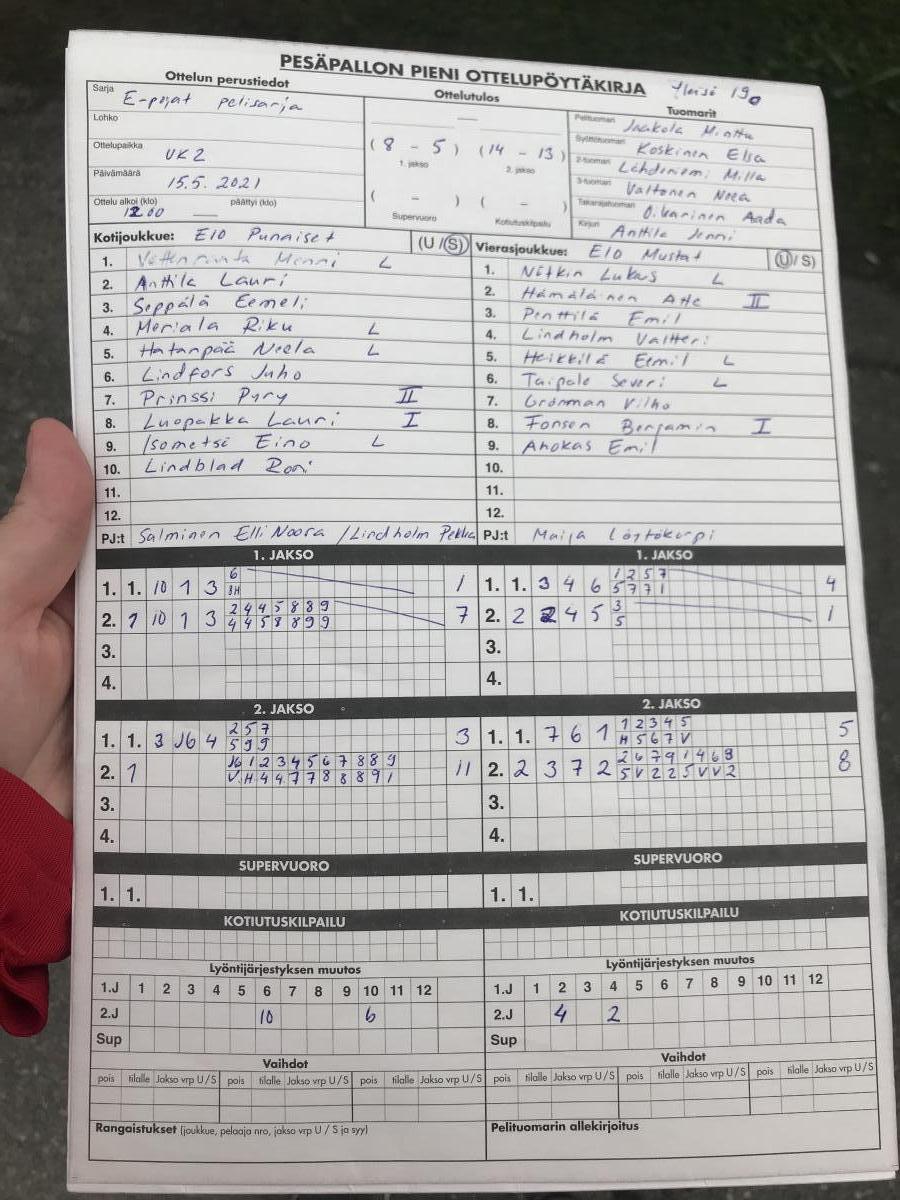 PESÄPALLON PIENI OTTELUPÖYTÄKIRJA Yleisö 190
Ottelun perustiedot
Ottelutulos
Tuomarit
Sarja E-pojat pelisarja
Lohko
Ottelupaikka UK 2
Päivämäärä 15.5. 2021
Ottelu alkoi (klo) 12.00 päättyi (klo)
( 8 - 5 ) ( 14 - 13 )
1. jakso 2. jakso
( - ) ( -
Supervuoro Kotiutuskilpailu
Pelituomari Jaakola Minttu
Syöttötuomari Koskinen Elsa
2-tuomari Lähdeniemi Milla
3-tuomari Valtonen Neea
Takarajatuomari Oikarinen Aada
Kirjuri Anttila Jenni
Kotijoukkue: E10 Punaiset (U / S)
1. Menni L
2. Anttila Lauri
3. Seppälä Eemeli
4. Meriala Riku L
5. Hatanpää Neela L
6. Lindfors Juho
7. Prinssi Pyry II
8. Luopakka Lauri I
9. Isometsä Eino L
10. Lindblad Roni
11.
12.
PJ:t Salminen Elli Noora / Lindholm Pekka
Vierasjoukkue: E10 Mustat (U / S)
1. Nätkin Lukas L
2. Hämäläinen Atte II
3. Penttilä Emil
4. Lindholm Valtteri
5. Heikkilä Eemil L
6. Taipale Severi L
7. Grönman Vilho
8. Fonsen Benjamin I
9. Ahokas Emil
10.
11.
12.
PJ:t Maija Löytökorpi
1. JAKSO
6
1. 1. 10 1 3 3H 1
2 4 4 5 8 8 9
2. 7 10 1 3 4 4 5 8 8 9 9 7
3.
4.
1. JAKSO
1 2 5 7
1. 1. 3 4 6 5 7 7 1 4
3
2. 2 2 4 5 5 1
3.
4.
2. JAKSO
2 5 7
1. 1. 3 J6 4 5 9 9 3
J6 1 2 3 4 5 6 7 8 8 9
2. 1 V H 4 4 7 7 8 8 8 9 1 11
3.
4.
2. JAKSO
1 2 3 4 5
1. 1. 7 6 1 H 5 6 7 V 5
2 6 7 9 1 4 6 8
2. 2 3 7 2 5 V 2 2 5 V V 2 8
3.
4.
SUPERVUORO
1. 1.
SUPERVUORO
1. 1.
KOTIUTUSKILPAILU
KOTIUTUSKILPAILU
Lyöntijärjestyksen muutos
1.J 1 2 3 4 5 6 7 8 9 10 11 12
2.J 10 6
Sup
Lyöntijärjestyksen muutos
1.J 1 2 3 4 5 6 7 8 9 10 11 12
2.J 4 2
Sup
Vaihdot
pois tilalle Jakso vrp U / S pois tilalle Jakso vrp U / S pois tilalle Jakso vrp U / S
Vaihdot
pois tilalle Jakso vrp U / S pois tilalle Jakso vrp U / S pois tilalle Jakso vrp U / S
Rangaistukset (joukkue, pelaaja nro, jakso vrp U / S ja syy)
Pelituomarin allekirjoitus